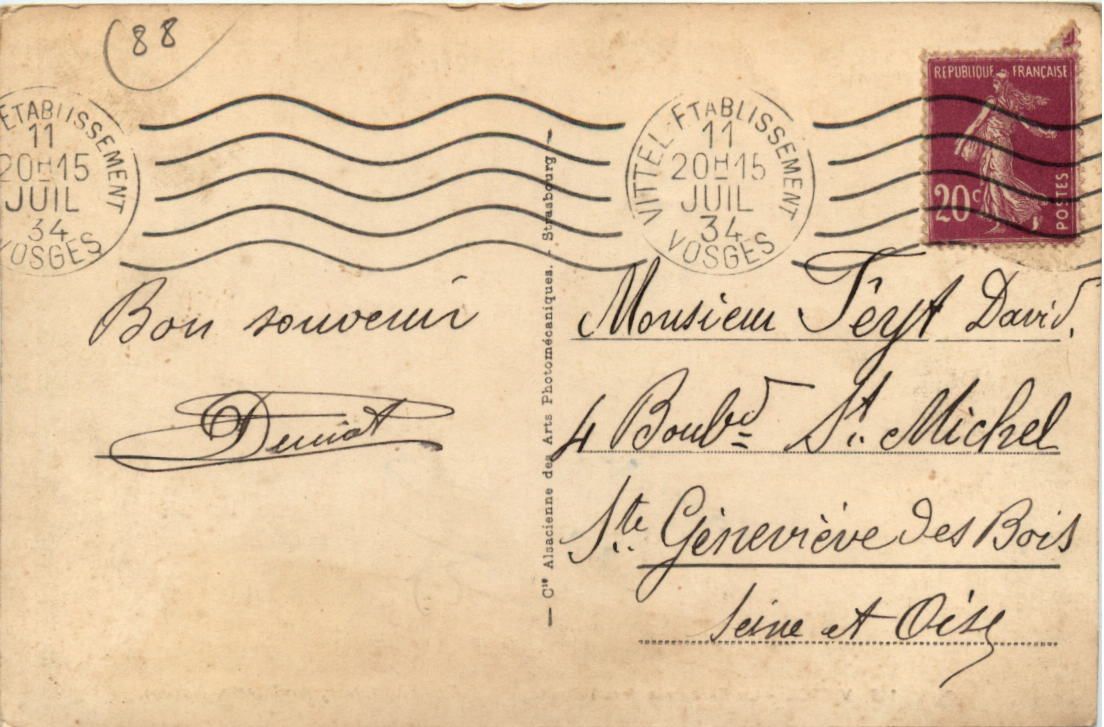 88
ETABLISSEMENT
11
20H15
JUIL
34
VOSGES
VITTEL-ETABLISSEMENT
11
20H15
JUIL
34
VOSGES
REPUBLIQUE FRANÇAISE
20c
POSTES
Bon souvenir
— Cie Alsacienne des Arts Photomécaniques. - Strasbourg —
Monsieur Feyt David.
4 Boulbd St. Michel
Ste. Géneviève des Bois
Seine et Oise